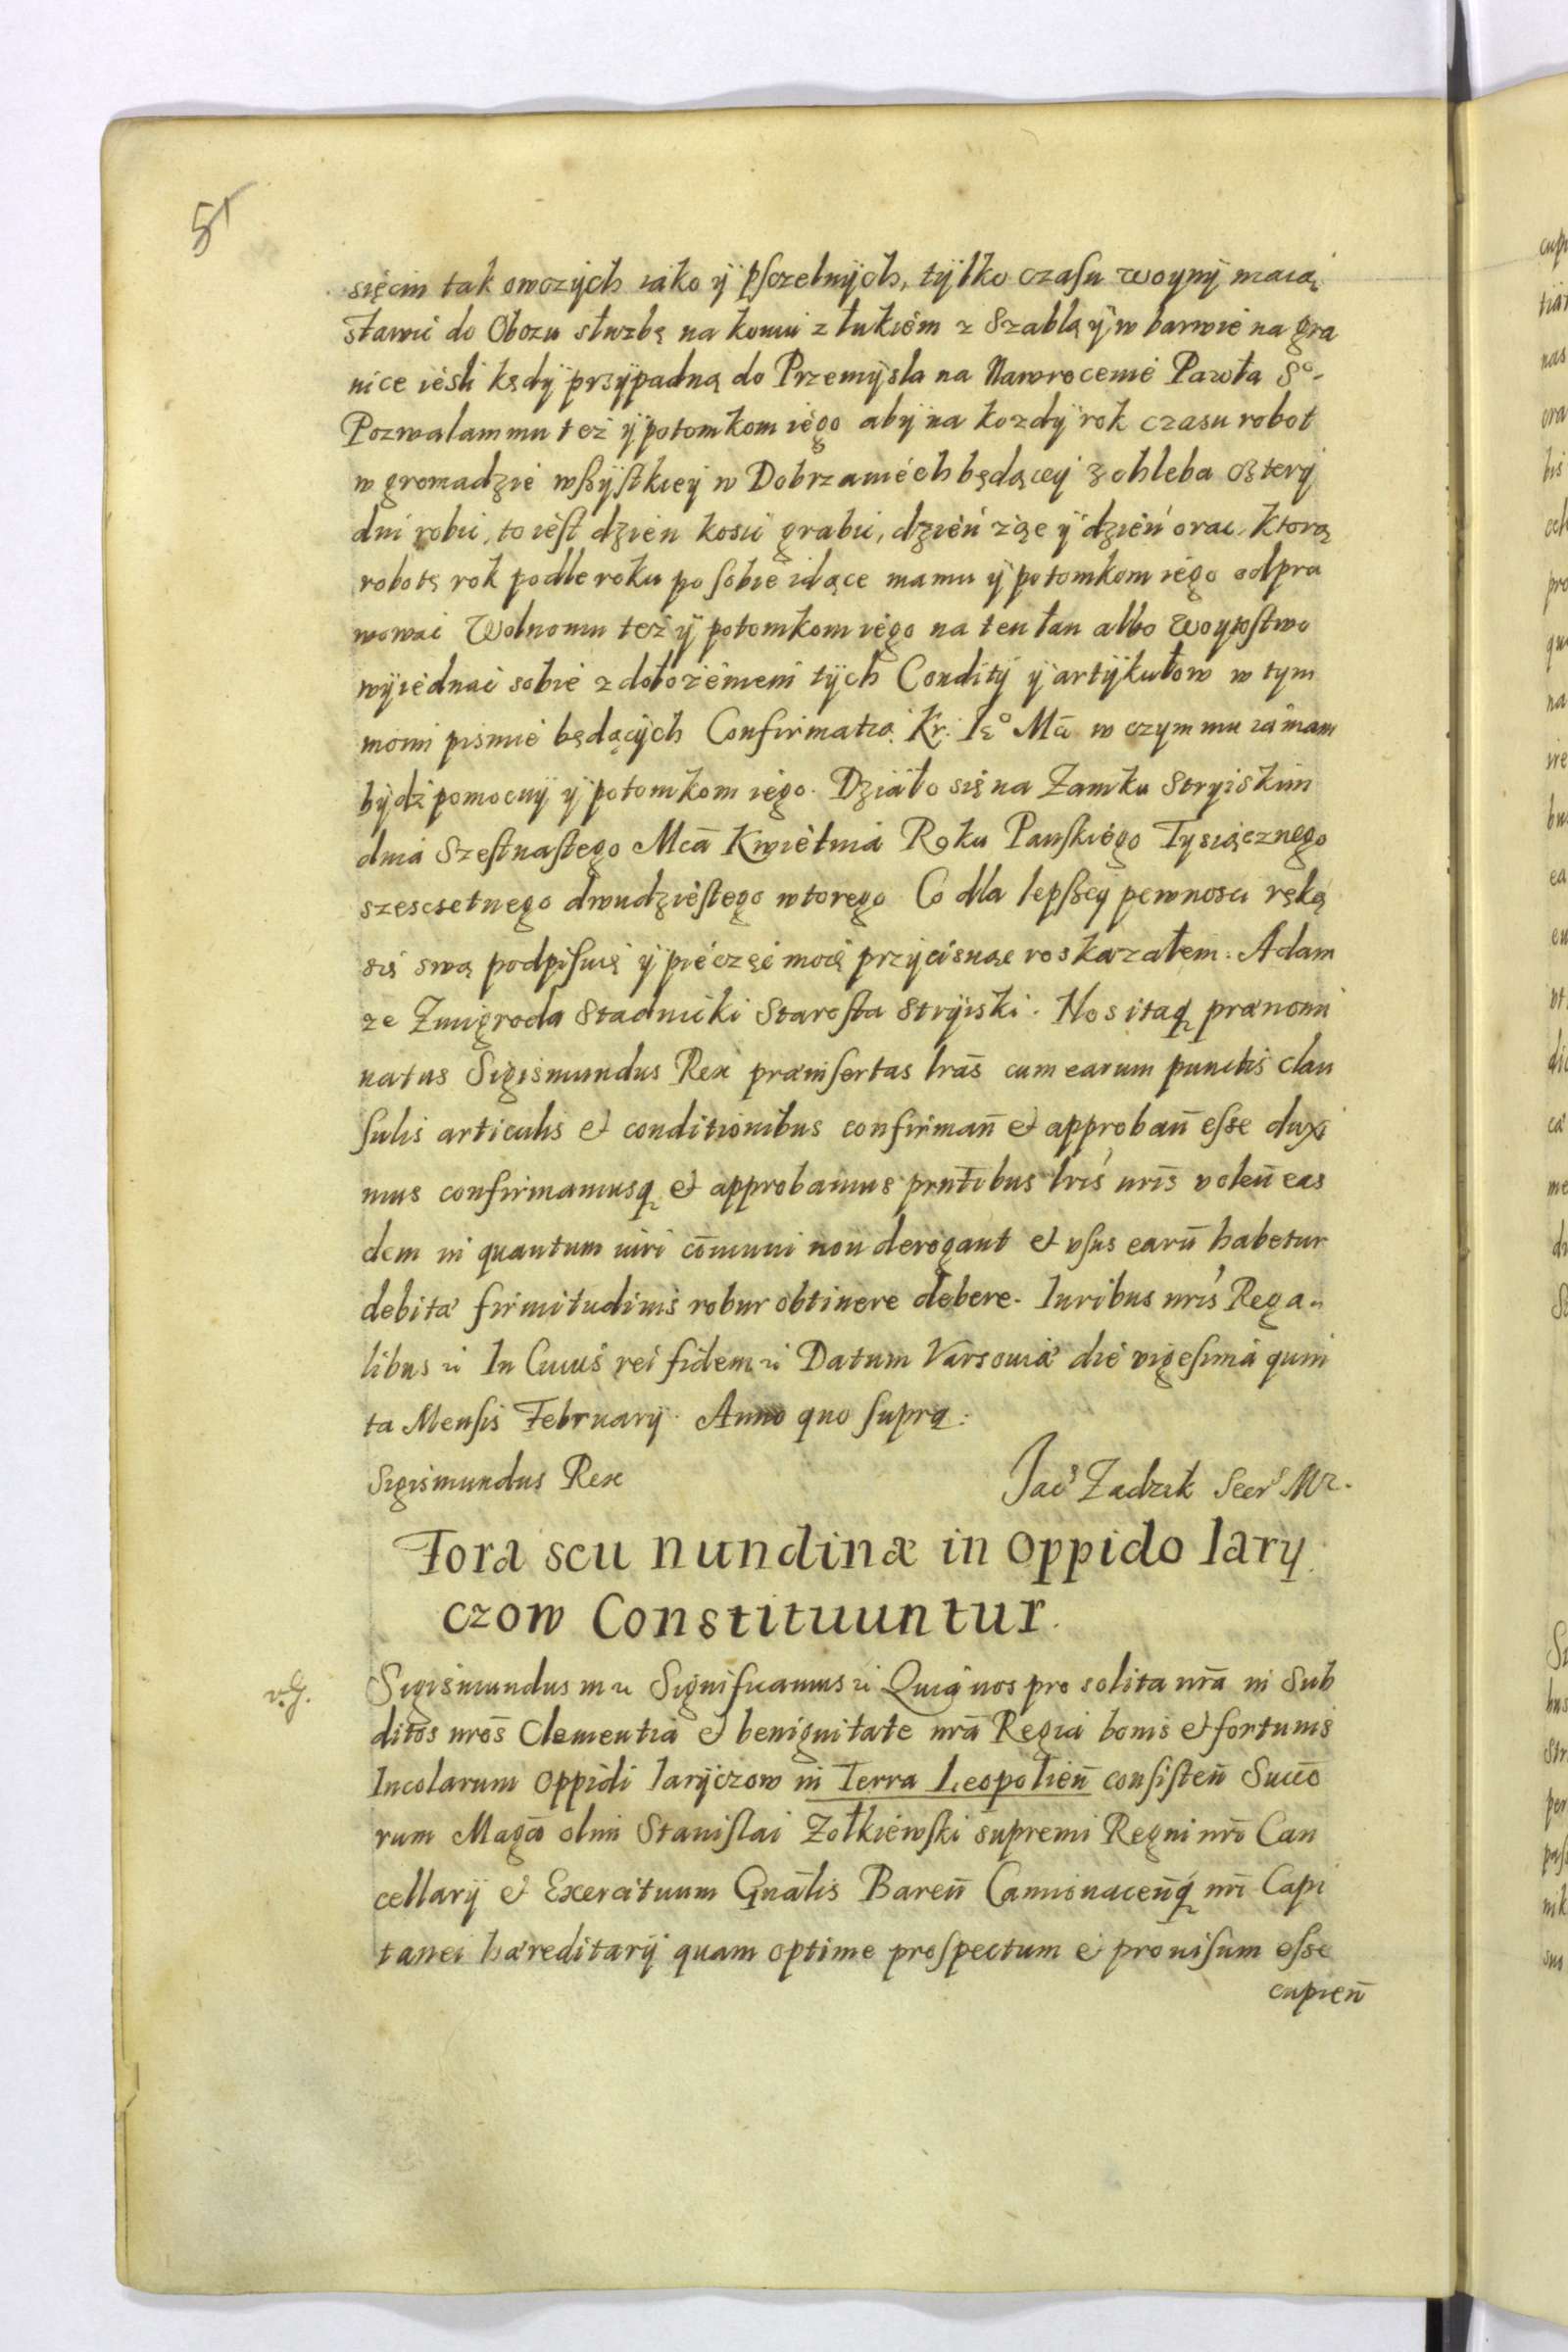 51
sięcin tak owczÿch iako ÿ pſczelnÿch, tÿlko czaſu woynÿ maią
stawić do Obozu służbę na koniu z łukiem z Szablą ÿ w barwie na gra
nice ieśli kędÿ przÿpadną do Przemÿsla na Nawrocenie Pawła So.
Pozwalam mu też ÿ potomkom iego abÿ na kozdÿ rok czasu robot
w gromadzie wßÿſtkieÿ w Dobrzaniech będąceÿ z chleba czterÿ
dni robić, to ieſt dzien kosić grabić, dzień ząc ÿ dzień orac, ktorą
robotę rok podle roku po ſobie idące ma mu ÿ potomkom iego odpra
wowac Wolno mu też ÿ potomkom iego na ten łan albo Woÿtoſtwo
wÿiednac sobie z dołożeniem tÿch Conditÿ ÿ artÿkułow w tym
moim pismie będącÿch Confirmatią Kr: Ięo Mći w czym mu ia mam
bÿdź pomocnÿ ÿ potomkom iego. Działo się na Zamku Stryiskim
dnia Szeſtnaſtego Mcā Kwietnia Roku Panſkiego Tysiącznego
szescsetnego dwudzieſtego wtorego Co dla lepßeÿ pewnosci ręką
się swą podpiſuię ÿ pieczęć moię przÿcisnąc roskazałem. Adam
ze Zmigroda Stadnicki Staroſta Stryiski. Nos itaq prænomi
natus Sigismundus Rex præinſertas lrās cum earum punctis clau
ſulis articulis et conditionibus confirman̄ et approban̄ eſse duxi
mus confirmamusq et approbamus prnt̄ibus lris nris̄ volen̄ eas
dem in quantum iuri cōmuni non derogant et vſus earū habetur
debitæ firmitudinis robur obtinere debere. Iuribus nris Rega„
libus etc̄ In Cuius rei fidem etc̄ Datum Varsouiæ die vigeſima quin
ta Menſis Februarÿ. Anno quo ſupra.
Sigismundus Rex
Jacs Zadzik Secrs Mr.
Fora seu nundinæ in oppido Iary
czow Constituuntur.
v.g.
Sigismundus III etc̄ Significamus etc̄ Quia nos pro solita nrā in Sub
ditos nros̄ Clementia et benignitate nrā Regia bonis et fortunis
Incolarum oppidi Iarÿczow in Terra Leopolien̄ conſiſten̄ Succō
rum Magci olim Stanislai Zołkiewſki supremi Regni nrō Can
cellarÿ et Exercituum Gnālis Baren̄ Camionacen̄q nrī Capi
tanei hæreditarÿ quam optime proſpectum et prouiſum eſse
cupien̄